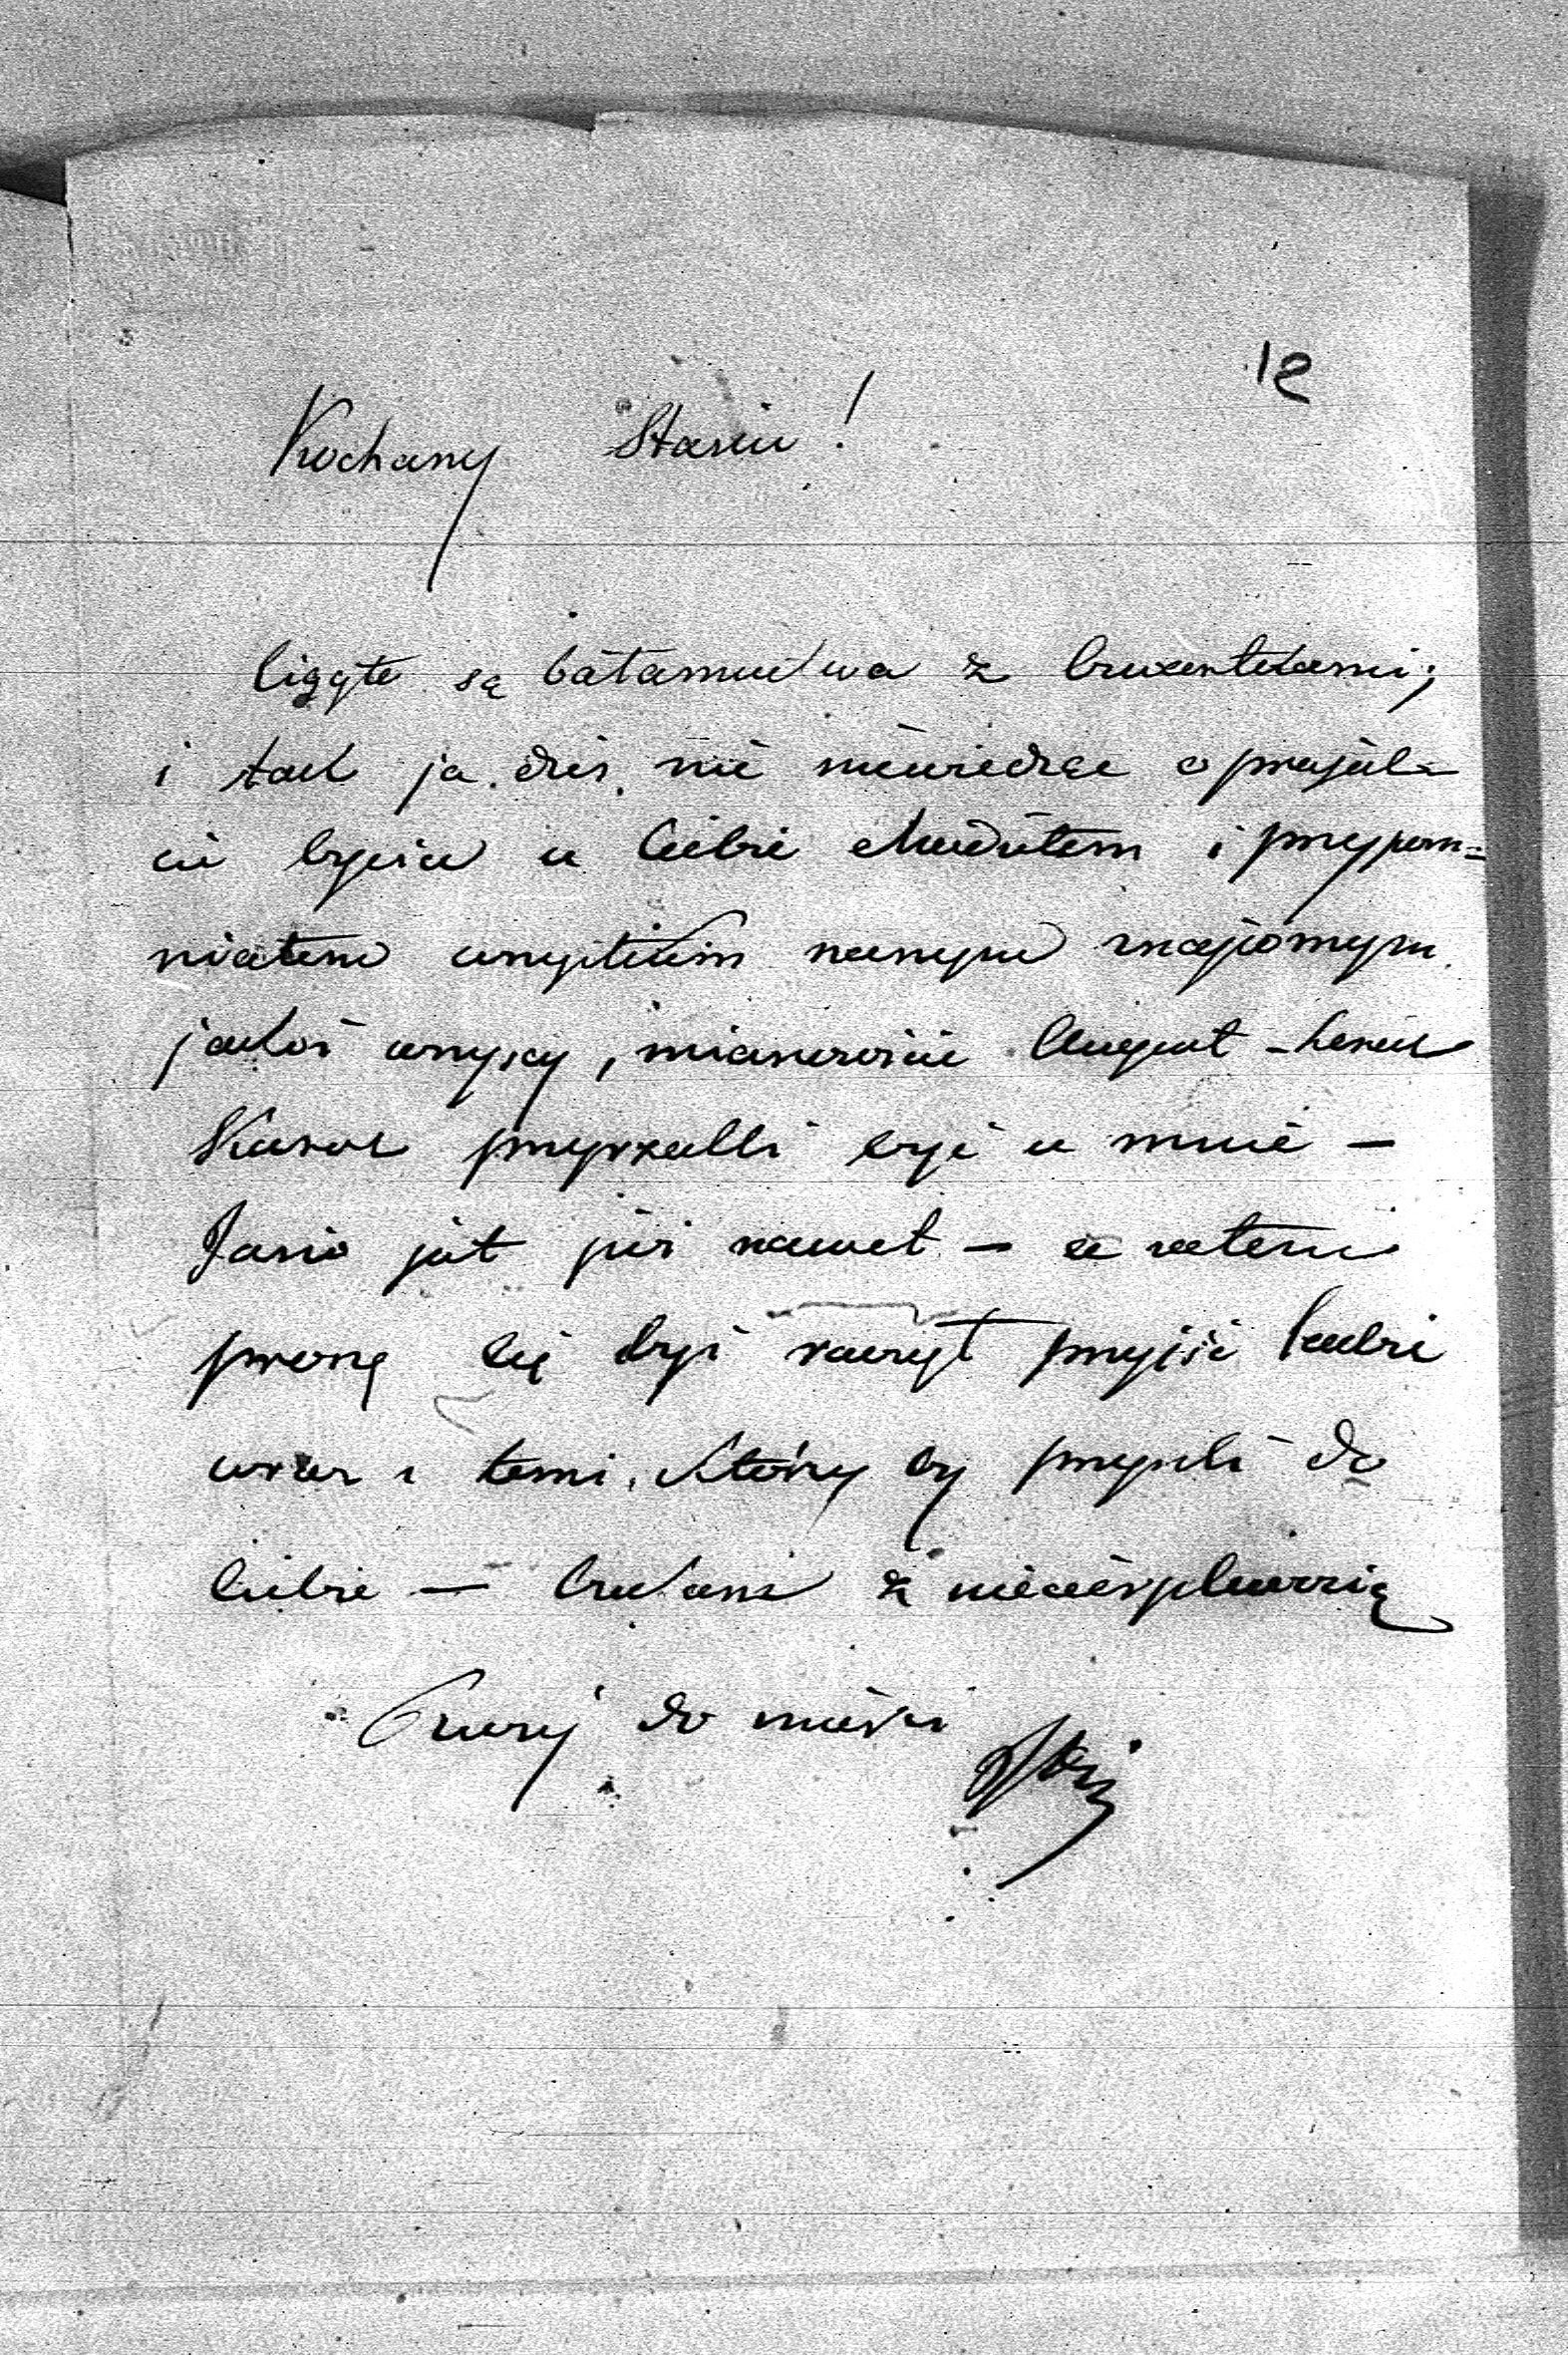 12
Kochany Stasiu!
Ciągłe są bałamuctwa z czwartkami;
i tak ja dziś nie wiedząc o projek-
cie bycia u Ciebie chodziłem i przypom=
niałem wszystkim naszym znajomym
jakoż wszyscy, mianowicie August - Leszek
Karol przyrzekli być u mnie –
Jasio jest już nawet – a zatem
proszę Cię byś raczył przyjść także
wraz i temi, którzy by przyszli do
Ciebie – Czekam z niecierpliwością
Twój do